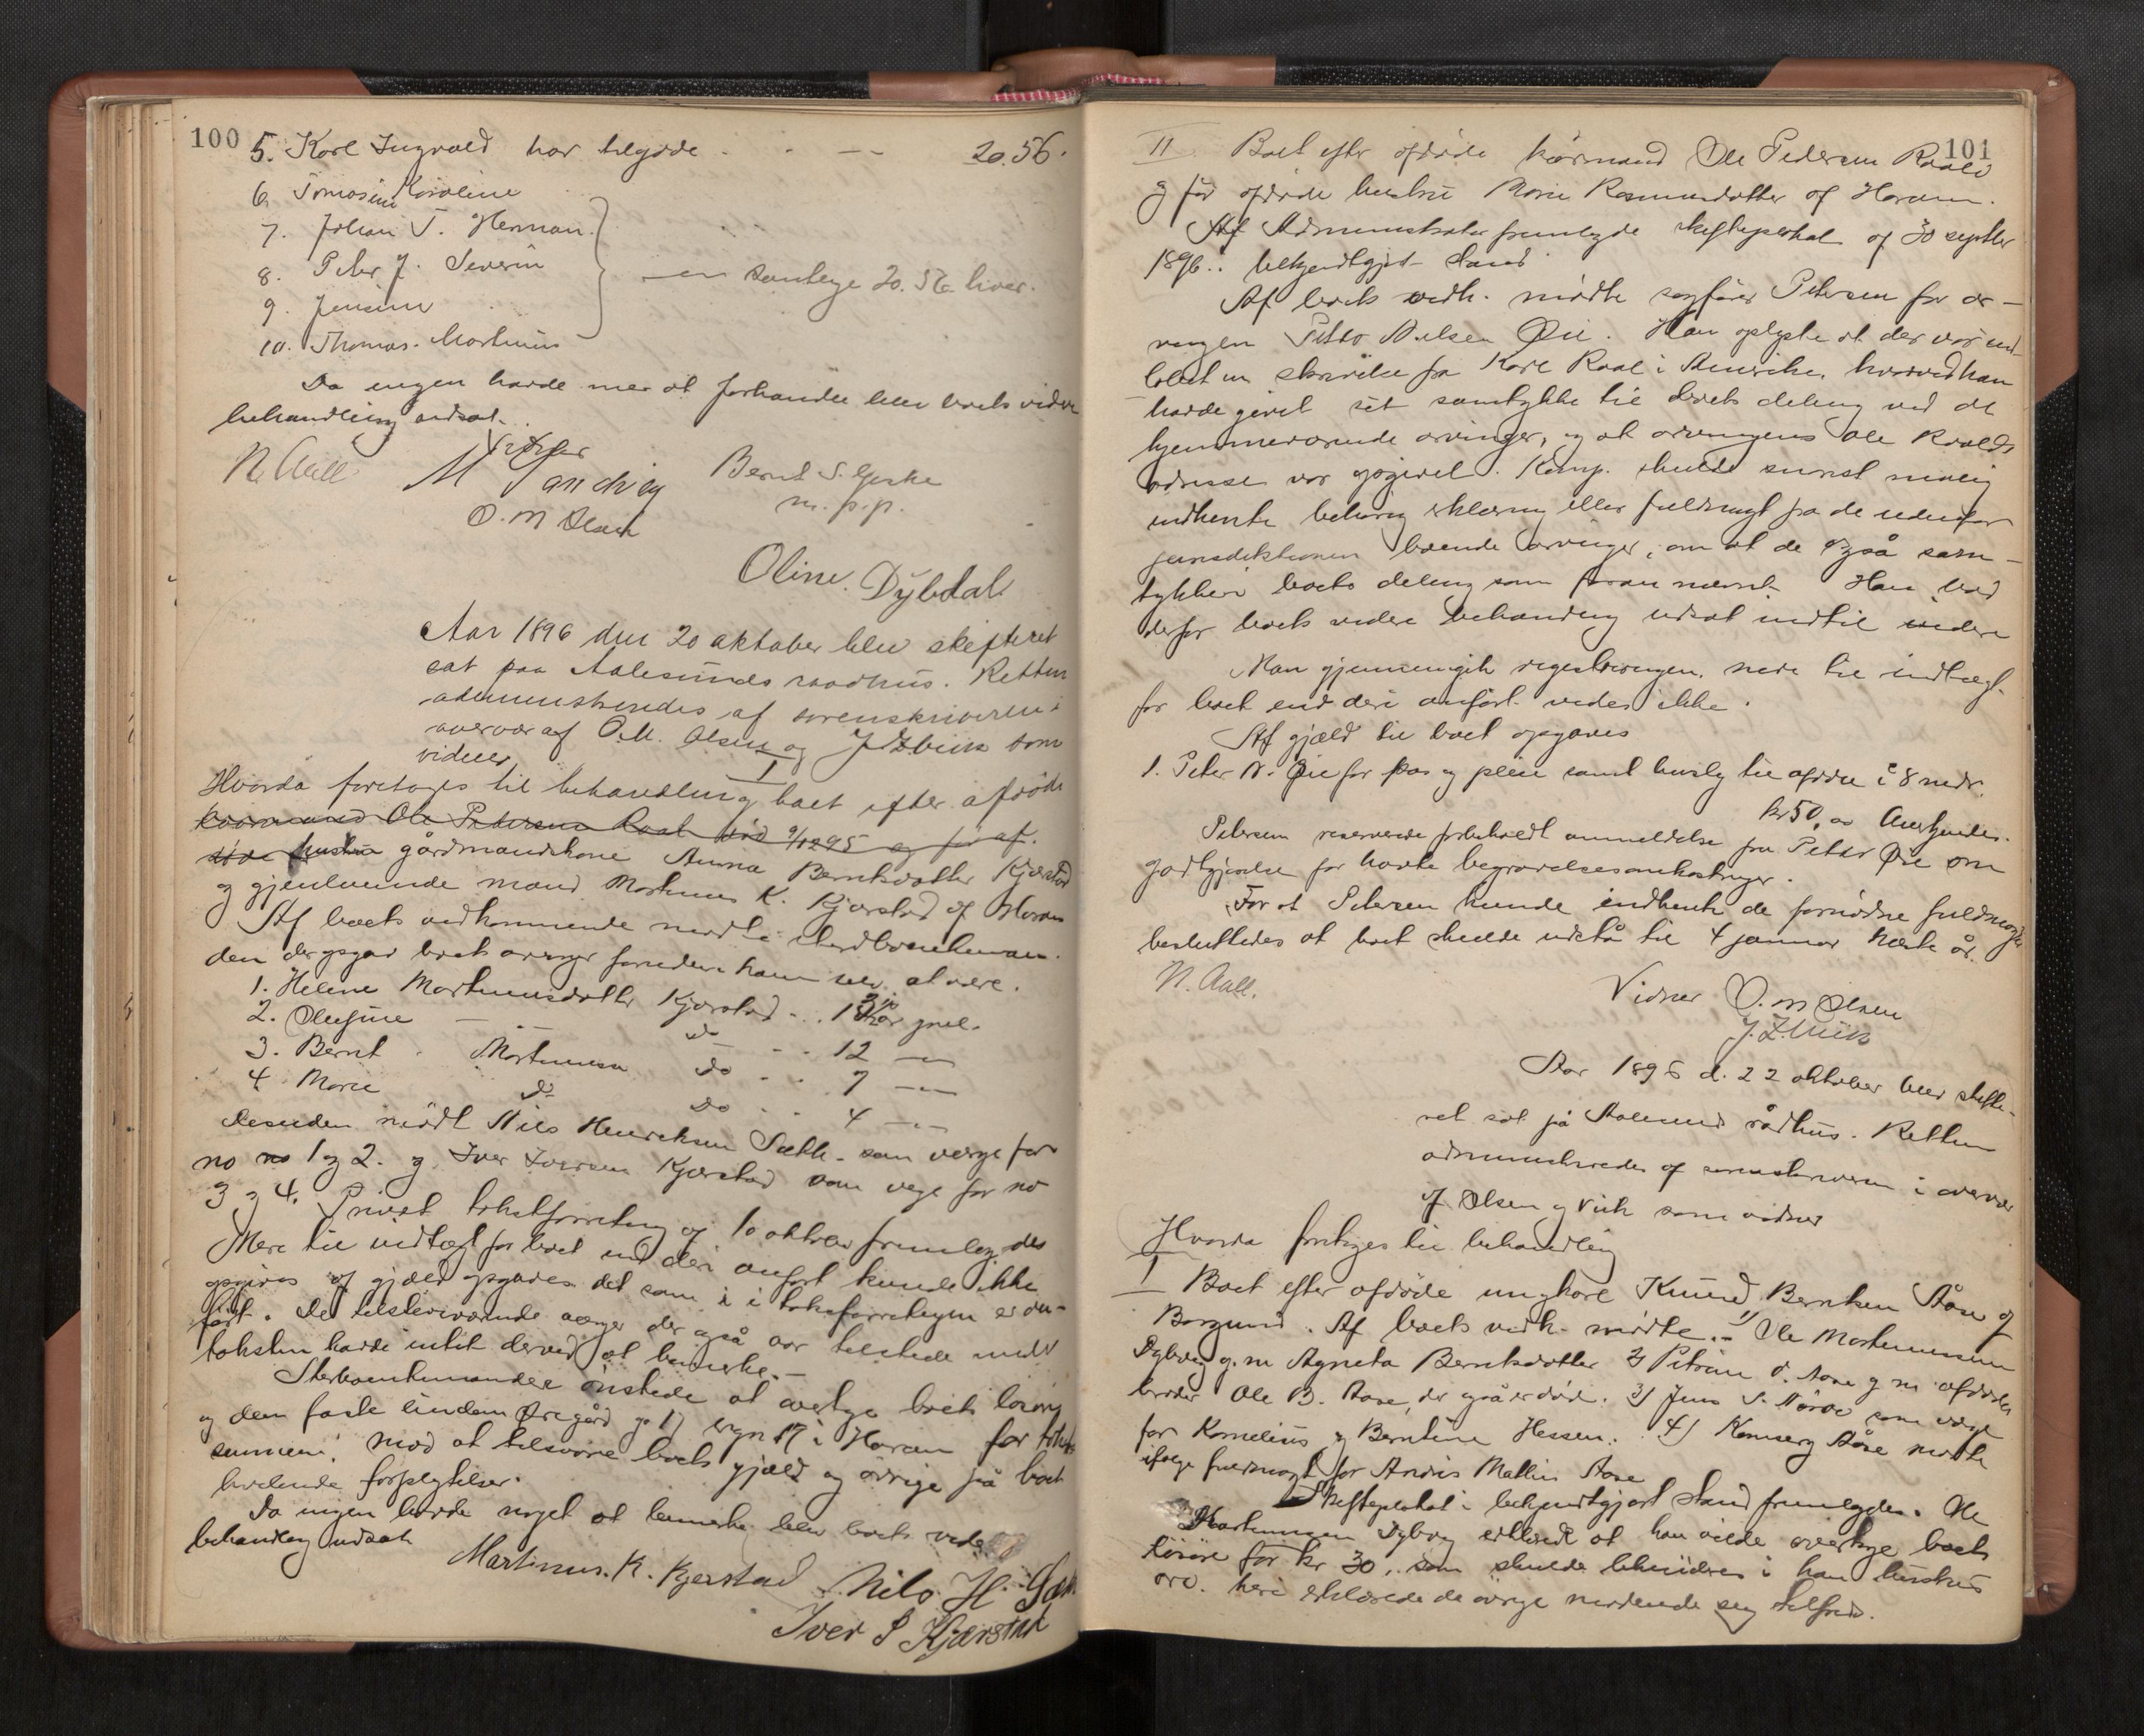 100
5. Karl Ingvald har tilgode - - — 20.56.
6. Tomasine Karoline
7. Johan T. Herman
8. Peter J. Severin
9. Jensine — samtlige 20.56 hver.
10. Thomas Martinus
Da ingen havde mer at forhandle blev boets videre
behandling udsat.
N. Aall Vidner
M Sandvig Bernt S. Gjerke
O. M Olsen m. p. p.
Oline Dybdal
Aar 1896 den 20 oktober blev skifteret
sat paa Aalesunds raadhus. Retten
administreredes af sorenskriveren i
overvær af O. M. Olsen og J Z Vik som
vidner
I
Hvorda foretoges til behandling boet efter afdøde
kaarmand Ole Pedersen Raal død 9/12 95 og før af-
døde hustru gårdmandskone Anna Berntsdatter Kjærstad
og gjenlevende mand Martinus K. Kjærstad af Haram
Af boets vedkommende mødte sterboenkeman-
den der opgav boets arvinger foruden ham selv at være.
1. Helene Martinusdatter Kjærstad - . . år gml.
2. Olufine — — Do - . 12 —
3. Bernt Martinusen Do . . 7 —
4. Marie Do Do . . 4 —
Desuden mødte Nils Henriksen Sæth som værge for
no no 1 og 2. og Iver Iversen Kjærstad som verge for no
3 og 4. Privat takstforretning af 10 oktober fremlagdes
Mere til indtægt for boet end deri anført kunde ikke
opgives af gjæld opgaves det som i i takstforretningen er an-
ført. De tilstedeværende værger der også var tilstede ved
taksten havde intet derved at bemerke. —
Sterboenkemanden ønskede at overtage boets løsøre
og den faste eiendom Øregård gn 17 i Haram for takst-
summen, mod at tilsvare boets gjæld og øvrige på boet
hvilende forpligtelser.
Da ingen havde noget at bemerke blev boets videre
behandling udsat
Martinus. K. Kjerstad Nils H. Sæth
Iver I Kjærstad
101
II Boet efter afdøde kårmand Ole Pedersen Raald
og før afdøde hustru Marie Rasmusdatter af Haram.
Af Administrator fremlagde skifteplakat af 30 septbr
1896 i bekjendtgjort stand
Af boets vedk. mødte sagfører Petersen for ar-
vingen Petter Nilsen Øie. Han oplyste at der var ind-
løbet en skrivelse fra Karl Raal i Amerika, hvorved han
havde givet sit samtykke til boets deling ved de
hjemmeværende arvinger, og at arvingens Ole Raalds
adresse var opgivet. Komp. skulde snarest mulig
indhente behørig erklæring eller fuldmagt fra de udenfor
jurisdiktionen boende arvinger, om at de også sam-
tykker i boets deling som foran nævnt. Han bad
derfor boets videre behandling udsat indtil videre
Man gjennemgik registreringen. mere til indtægt
for boet end deri anført vides ikke.
Af gjæld til boet opgaves
1. Peter N. Øie for pas og pleie samt husly til afdøde i 8 mdr.
kr 50,00 Anerkjendes.
Petersen reserverede forbeholdt anmeldelse fra Petter Øie om
godtgjørelse for havte begravelsesomkostninger.
For at Petersen kunde indhente de fornødne fuldmagter
besluttedes at boet skulde udstå til 4 januar næste år.
N. Aall. Vidner O. M Olsen
J. Z. Vik
Aar 1896 d. 22 oktober blev skifte-
ret sat på Aalesund rådhus. Retten
administreredes af sorenskriveren i overvær
af Olsen og Vik som vidner
Hvorda foretoges til behandling
I Boet efter afdøde ungkarl Knud Berntsen Åse af
Borgund. Af boets vedk. mødte. - 1) Ole Martinussen
Dybvig g. m Agneta Berntsdatter 2) Petrine O. Aase g m afdødes
broder Ole B. Aase, der også er død. 3) Jens S. som værge
for Kornelius og Berntine Hessen. 4) Åse mødte
ifølge fuldmagt for Mallin Aase
Skifteplakat i bekjendtgjort stand fremlagdes. Ole
Martinusen Dybvig erklærede at han vilde overtage boets
løsøre for kr 30, som skulde likvideres i hans hustrus
arv. heri erklærede de øvrige mødende sig tilfreds.